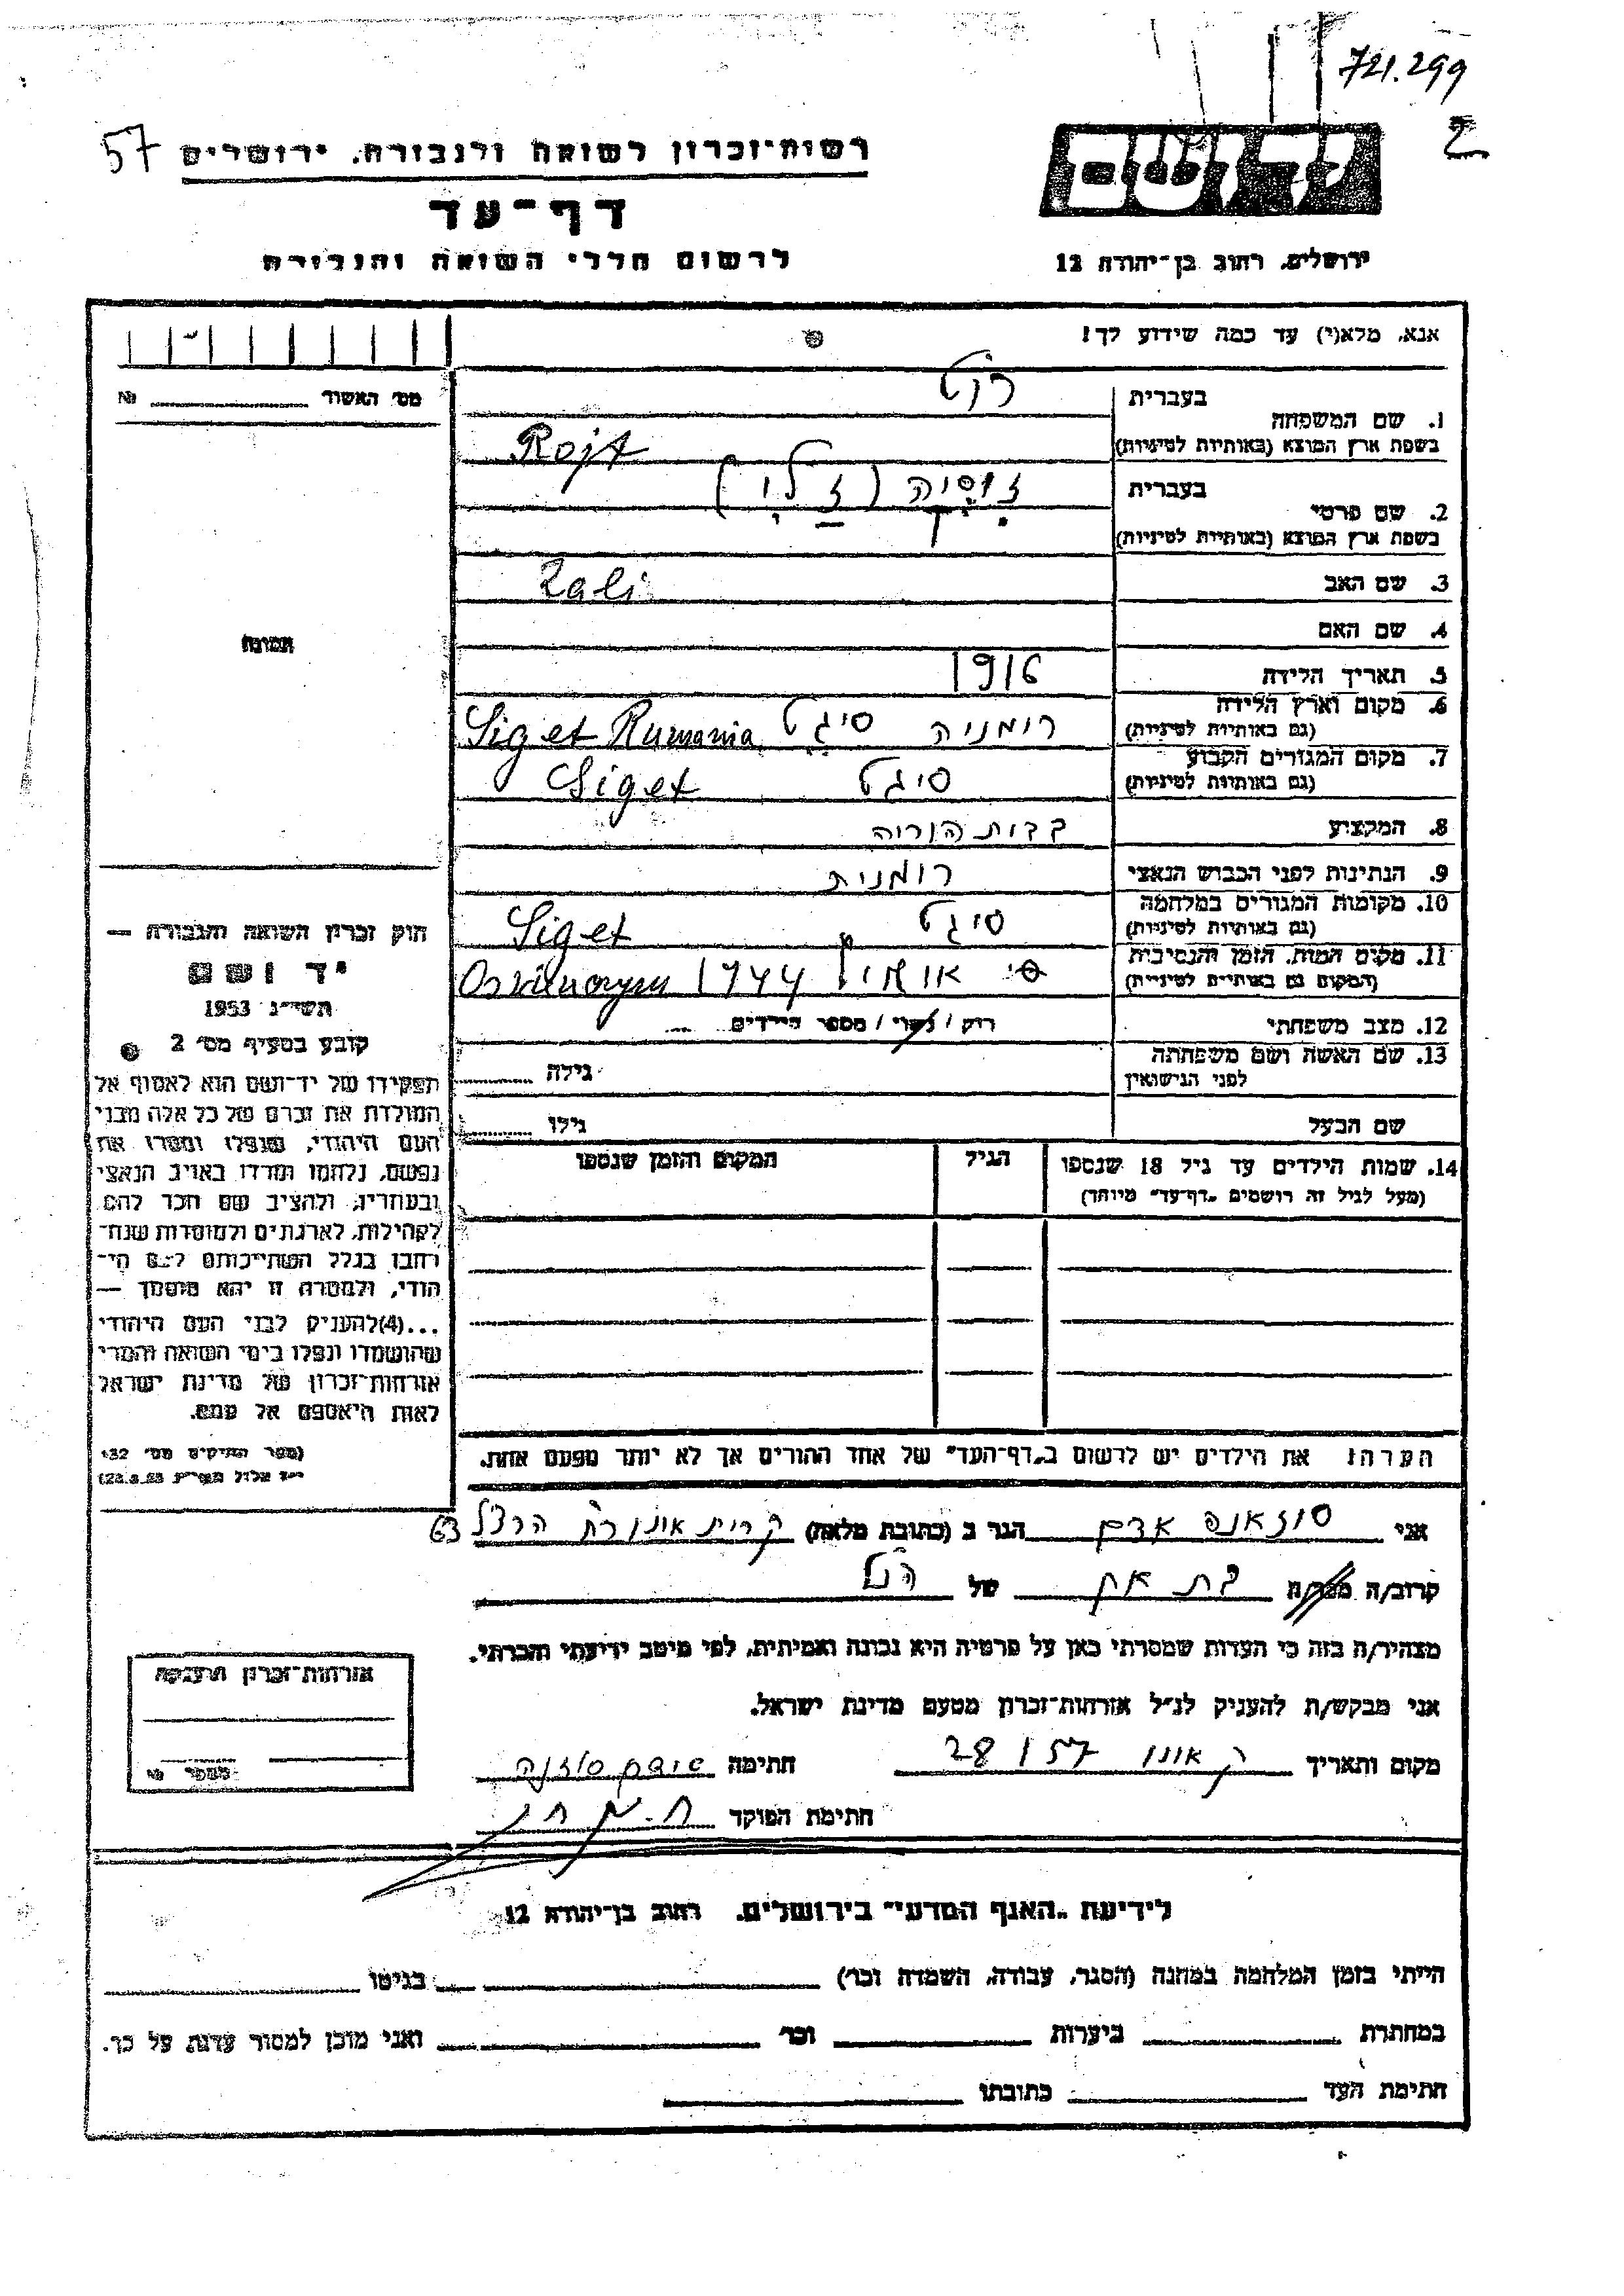 721.299
2
57
רשות־זכרון לשואה ולגבורה, ירושלים
דף־עד
לרשום חללי השואה והגבורה
יד ושם
ירושלים, רחוב בן־יהודה 12
אנא, מלא(י) עד כמה שידוע לך!
מס׳ האשור № 
1. שם המשפחה
בעברית
בשפת ארץ המוצא (באותיות לטיניות) Rojt
2. שם פרטי
בעברית
בשפת ארץ המוצא (באותיות לטיניות)
3. שם האב Zali
4. שם האם
5. תאריך הלידה 1916
6. מקום וארץ הלידה רומניה סיגט Siget Rumania
(גם באותיות לטיניות)
7. מקום המגורים הקבוע סיגט Siget
(גם באותיות לטיניות)
8. המקצוע
9. הנתינות לפני הכבוש הנאצי רומנית
10. מקומות המגורים במלחמה סיגט Siget
(גם באותיות לטיניות)
11. מקום המות, הזמן והנסיבות 1944
(המקום גם באותיות לטיניות)
12. מצב משפחתי רוק / נשוי / מספר הילדים
13. שם האשה ושם משפחתה גילה
לפני הנישואין
שם הבעל גילו
14. שמות הילדים עד גיל 18 שנספו הגיל המקום והזמן שנספו
(מעל לגיל זה רושמים „דף־עד" מיוחד)
הערה: את הילדים יש לרשום ב„דף־העד" של אחד ההורים אך לא יותר מפעם אחת.
תמונה
חוק זכרון השואה והגבורה —
יד ושם
תשי״ג 1953
קובע בסעיף מס׳ 2
תפקידו של יד־ושם הוא לאסוף אל
המולדת את זכרם של כל אלה מבני
העם היהודי, שנפלו ומסרו את
נפשם, נלחמו ומרדו באויב הנאצי
ובעוזריו, ולהציב שם וזכר להם
לקהילות, לארגונים ולמוסדות שנח־
רבו בגלל השתייכותם לעם הי־
הודי, ולמטרה זו יהא מוסמך —
...(4)להעניק לבני העם היהודי
שהושמדו ונפלו בימי השואה והמרי
אזרחות־זכרון של מדינת ישראל
לאות היאספם אל עמם.
(ספר החוקים מס׳ 132
אני אדם הגר ב (כתובת מלאה) קרית אונו רח הרצל 63
קרוב/ה מכר/ה של
מצהיר/ה בזה כי העדות שמסרתי כאן על פרטיה היא נכונה ואמיתית, לפי מיטב ידיעתי והכרתי.
אני מבקש/ת להעניק לנ״ל אזרחות־זכרון מטעם מדינת ישראל.
מקום ותאריך ק אונו חתימה
חתימת הפוקד
אזרחות־זכרון הוענקה
מספר
לידיעת „האגף המדעי" בירושלים, רחוב בן־יהודה 12
הייתי בזמן המלחמה במחנה (הסגר, עבודה, השמדה וכו׳) בגיטו
במחתרת ביערות וכו׳ ואני מוכן למסור עדות על כך.
חתימת העד כתובתו